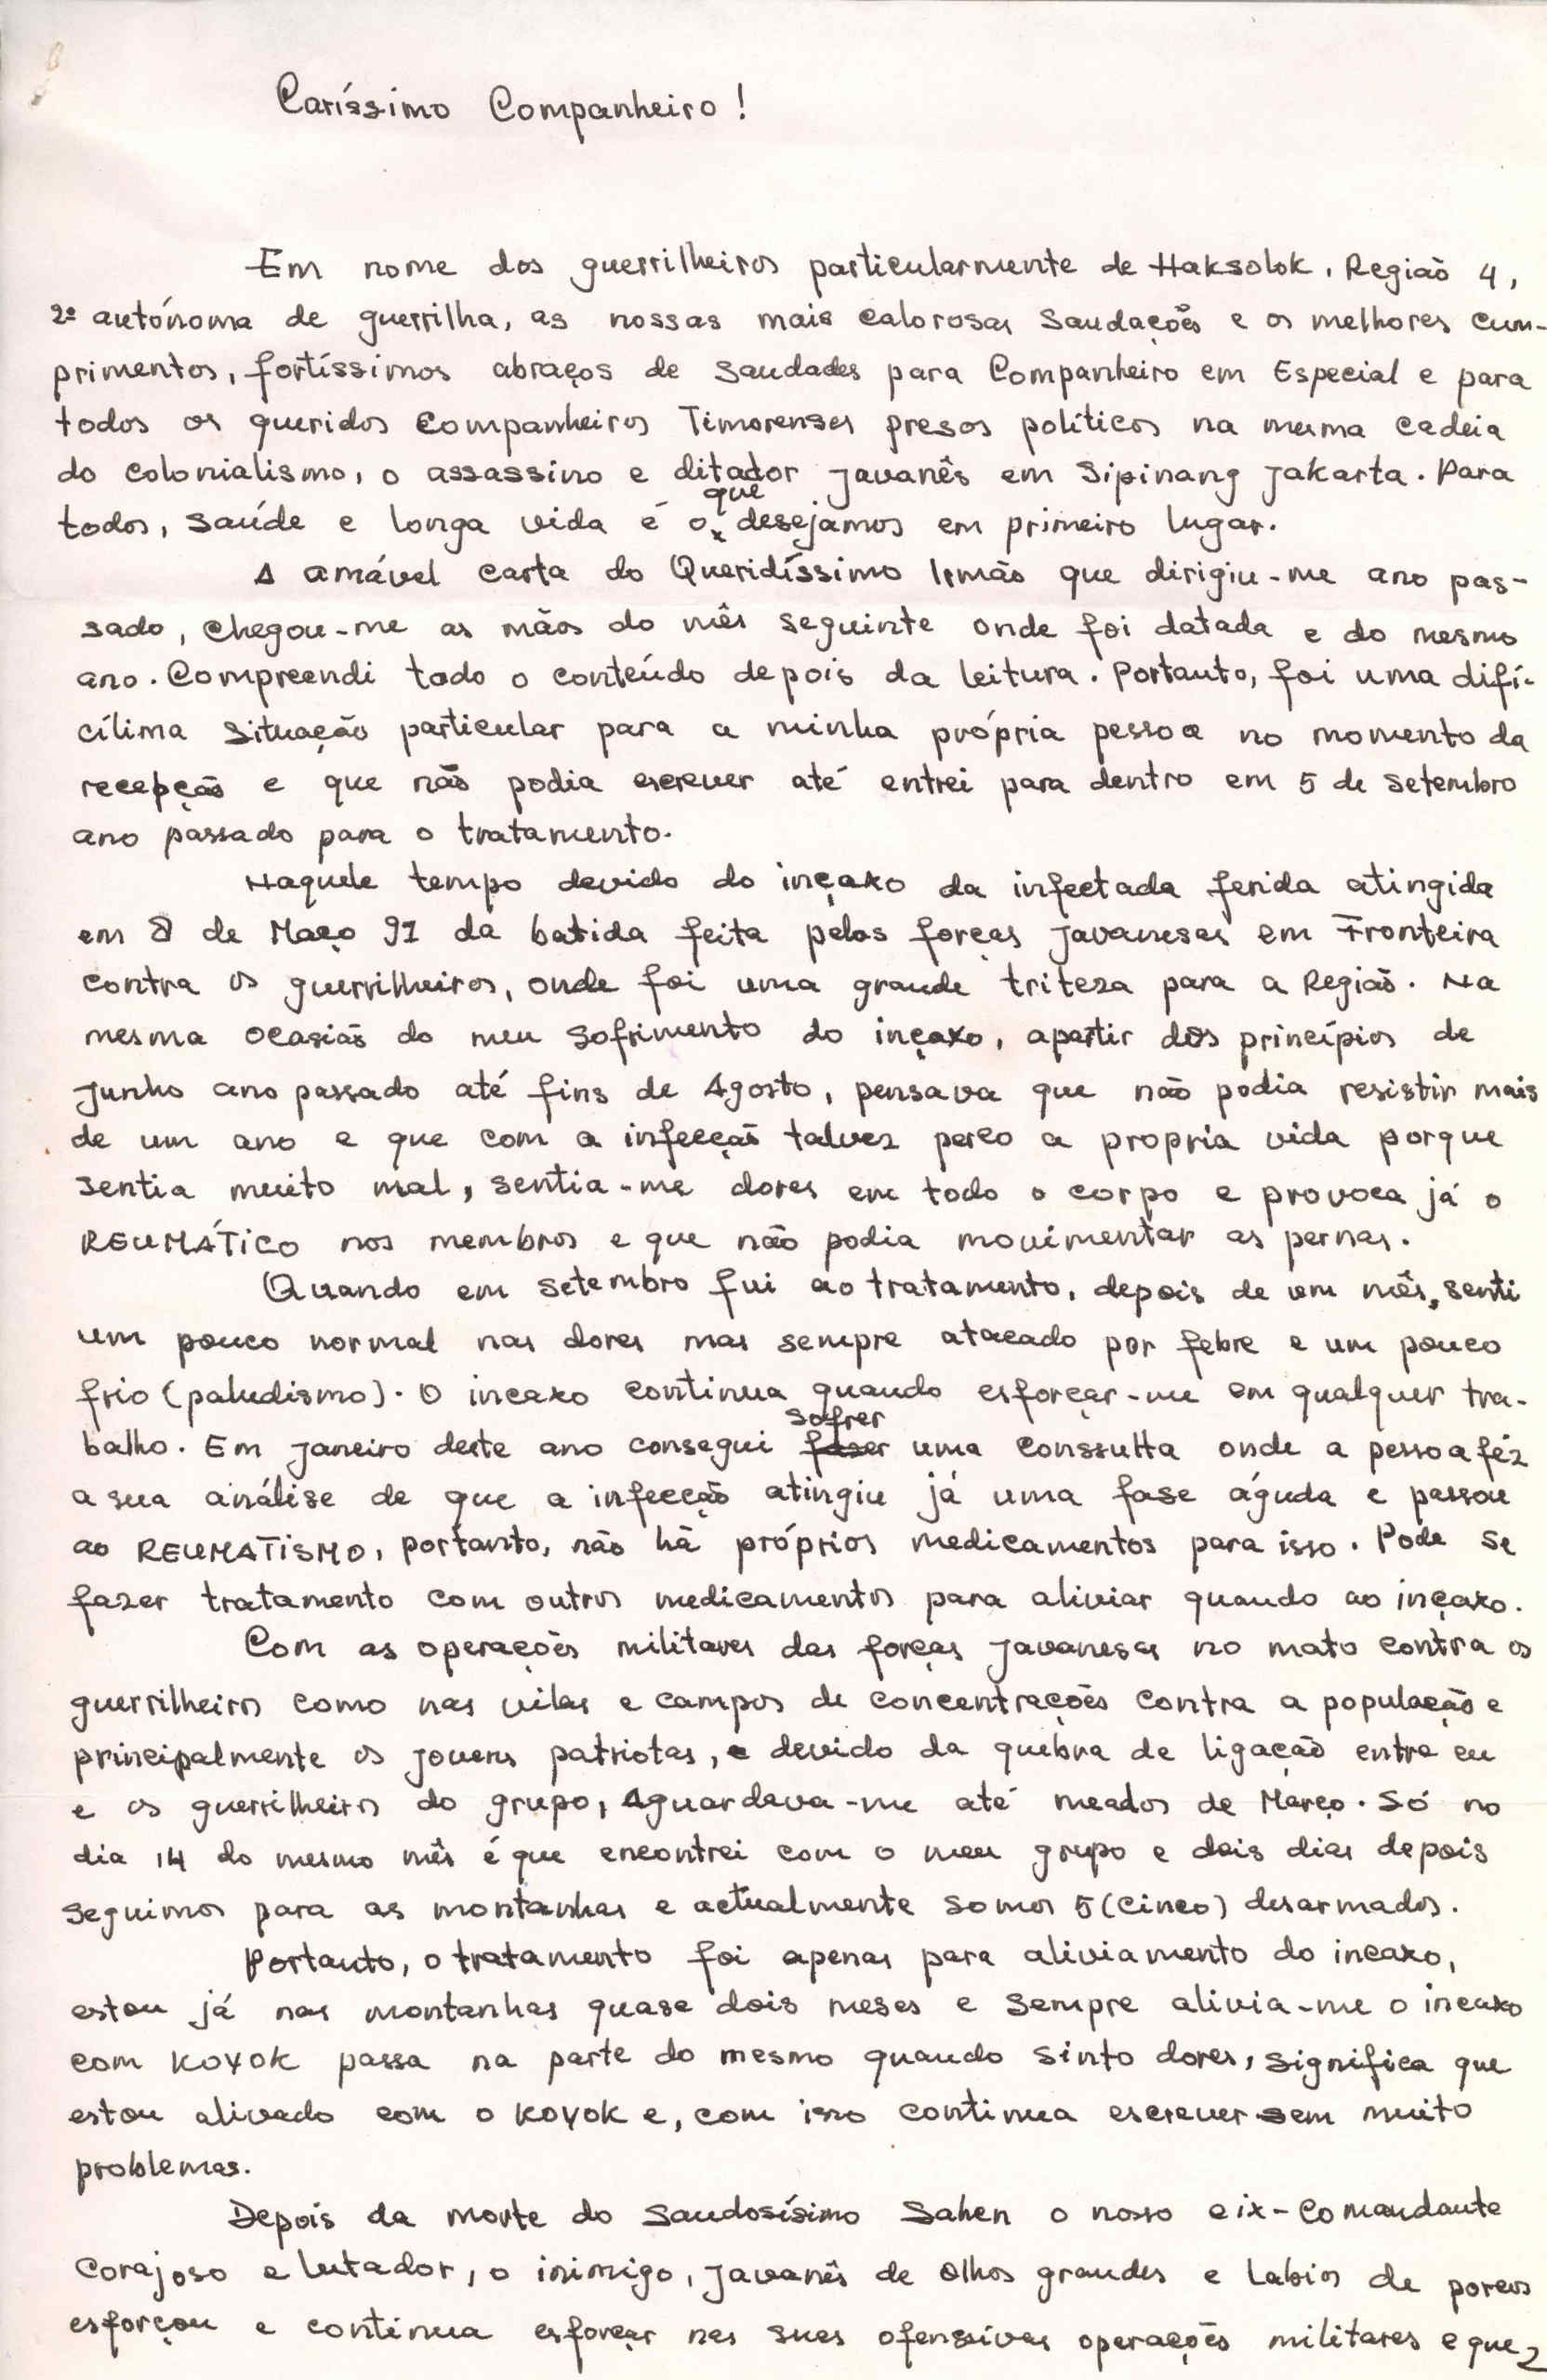 Caríssimo Companheiro!
Em nome dos guerrilheiros particularmente de Haksolok, Região 4,
2ª autónoma de guerrilha, as nossas mais calorosas saudações e os melhores cum-
primentos, fortíssimos abraços de saudades para Companheiro em Especial e para
todos os queridos companheiros Timorenses presos políticos na mesma cadeia
do colonialismo, o assassino e ditador javanês em Sipinang Jakarta. Para
todos, saúde e longa vida é o que desejamos em primeiro lugar.
A amável carta do Queridíssimo Irmão que dirigiu-me ano pas-
sado, chegou-me as mãos do mês seguinte onde foi datada e do mesmo
ano. Compreendi todo o conteúdo depois da leitura. Portanto, foi uma difí-
cílima situação particular para a minha própria pessoa no momento da
recepção e que não podia escrever até entrei para dentro em 5 de setembro
ano passado para o tratamento.
Naquele tempo devido do inçaxo da infectada ferida atingida
em 8 de Março 91 da batida feita pelas forças javanesas em Fronteira
contra os guerrilheiros, onde foi uma grande triteza para a Região. Na
mesma ocasião do meu sofrimento do inçaxo, apartir dos princípios de
Junho ano passado até fins de Agosto, pensava que não podia resistir mais
de um ano e que com a infecção talvez perco a propria vida porque
sentia muito mal, sentia-me dores em todo o corpo e provoca já o
REUMÁTICO nos membros e que não podia movimentar as pernas.
Quando em setembro fui ao tratamento, depois de um mês, senti
um pouco normal nas dores mas sempre atacado por febre e um pouco
frio (paludismo). O incaxo continua quando esforçar-me em qualquer tra-
balho. Em Janeiro deste ano consegui sofrer uma conssulta onde a pessoa féz
a sua análise de que a infecção atingiu já uma fase águda e passou
ao REUMATISMO, portanto, não há próprios medicamentos para isso. Pode se
fazer tratamento com outros medicamentos para aliviar quando ao inçaxo.
Com as operações militares das forças javanesas no mato contra os
guerrilheiros como nas vilas e campos de concentrações contra a população e
principalmente os jovens patriotas, e devido da quebra de ligação entre eu
e os guerrilheiros do grupo, Aguardava-me até meados de Março. Só no
dia 14 do mesmo mês é que encontrei com o meu grupo e dois dias depois
seguimos para as montanhas e actualmente somos 5 (cinco) desarmados.
Portanto, o tratamento foi apenas para aliviamento do incaxo,
estou já nas montanhas quase dois meses e sempre alivia-me o incaxo
com KOYOK passa na parte do mesmo quando sinto dores, significa que
estou alivado com o KOYOK e, com isso continua escrever sem muito
problemas.
Depois da morte do saudosísimo Sahen o nosso eix-Comandante
corajoso e lutador, o inimigo, javanês de olhos grandes e labios de porcos
esforçou e continua esforçar nas suas ofenssivas operações militares e que